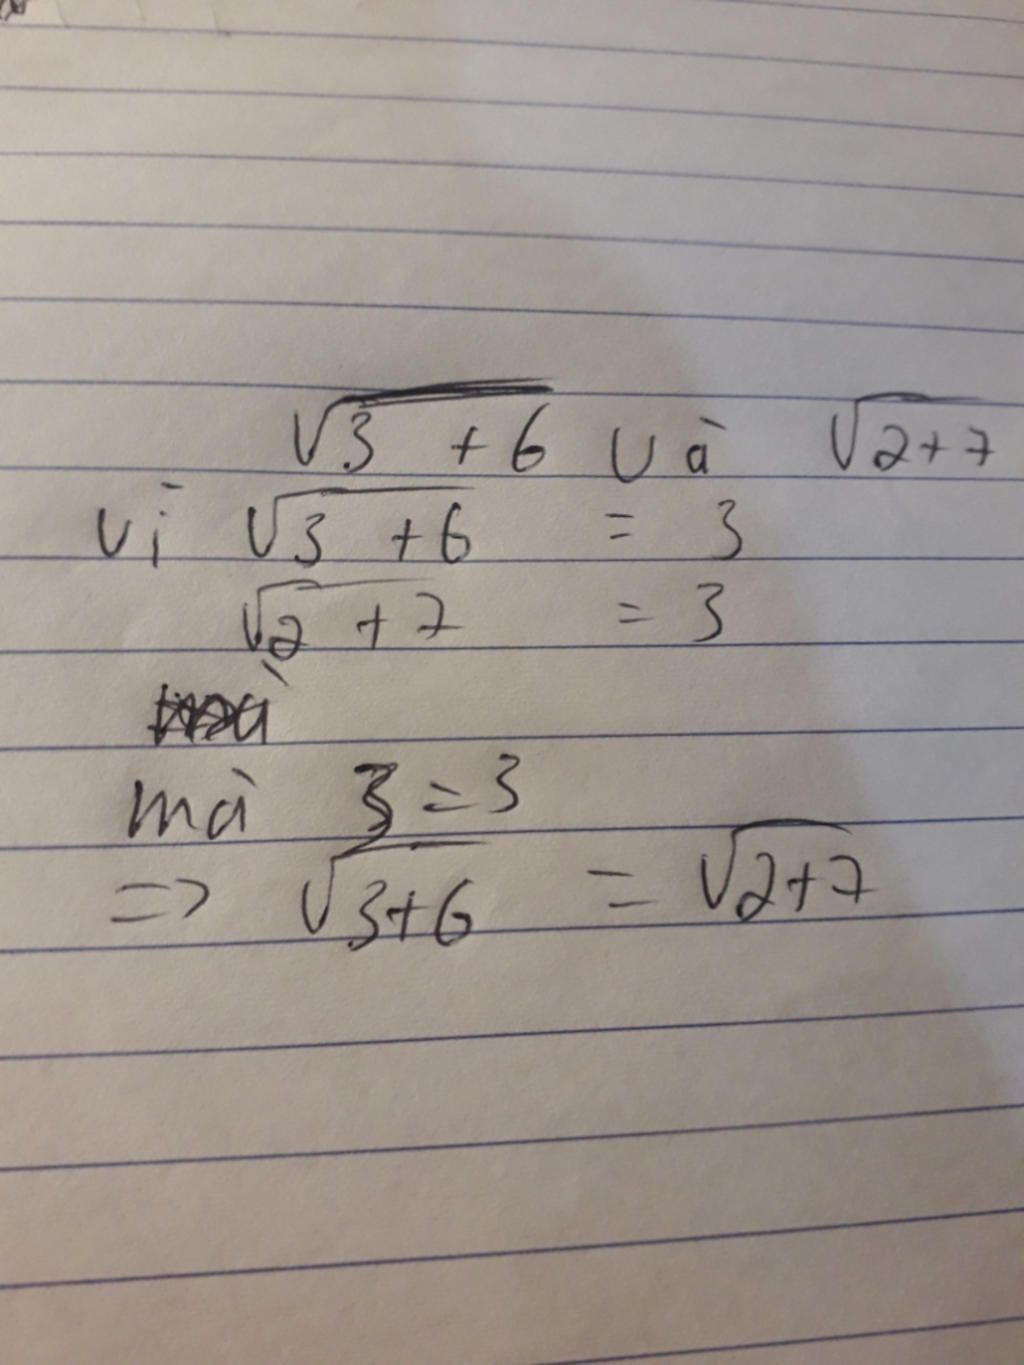 √(3 + 6) và √(2+7)
vì √(3 + 6) = 3
√(2 + 7) = 3
mà 3 = 3
=> √(3+6) = √(2+7)